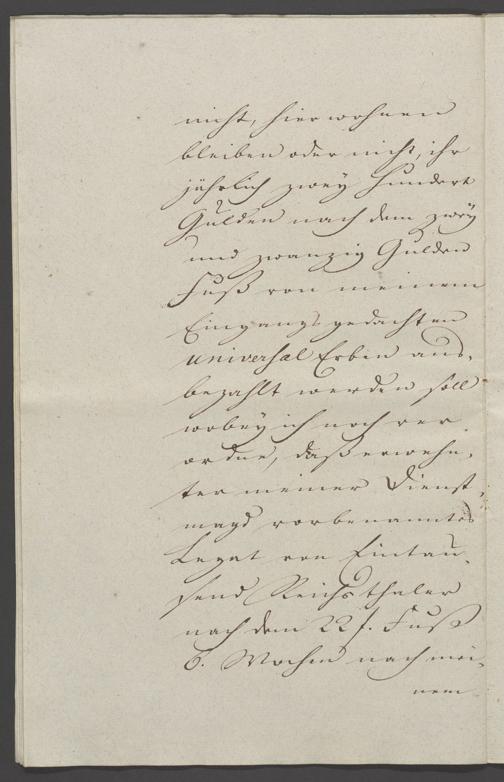 nicht, hier wohnen
bleiben oder nicht, ihr
jährlich zwey hundert
Gulden nach dem zwey
und zwanzig Gulden
Fuß von meinem
Eingangs gedachten
universal Erben aus-
bezahlt werden soll
wobey ich noch ver-
ordne, daß erwehn-
ter meiner Dienst-
magd vorbenanntes
Legat von Eintau-
send Reichsthaler
nach dem 22 f. Fuß
6. Wochen nach mei-
nem